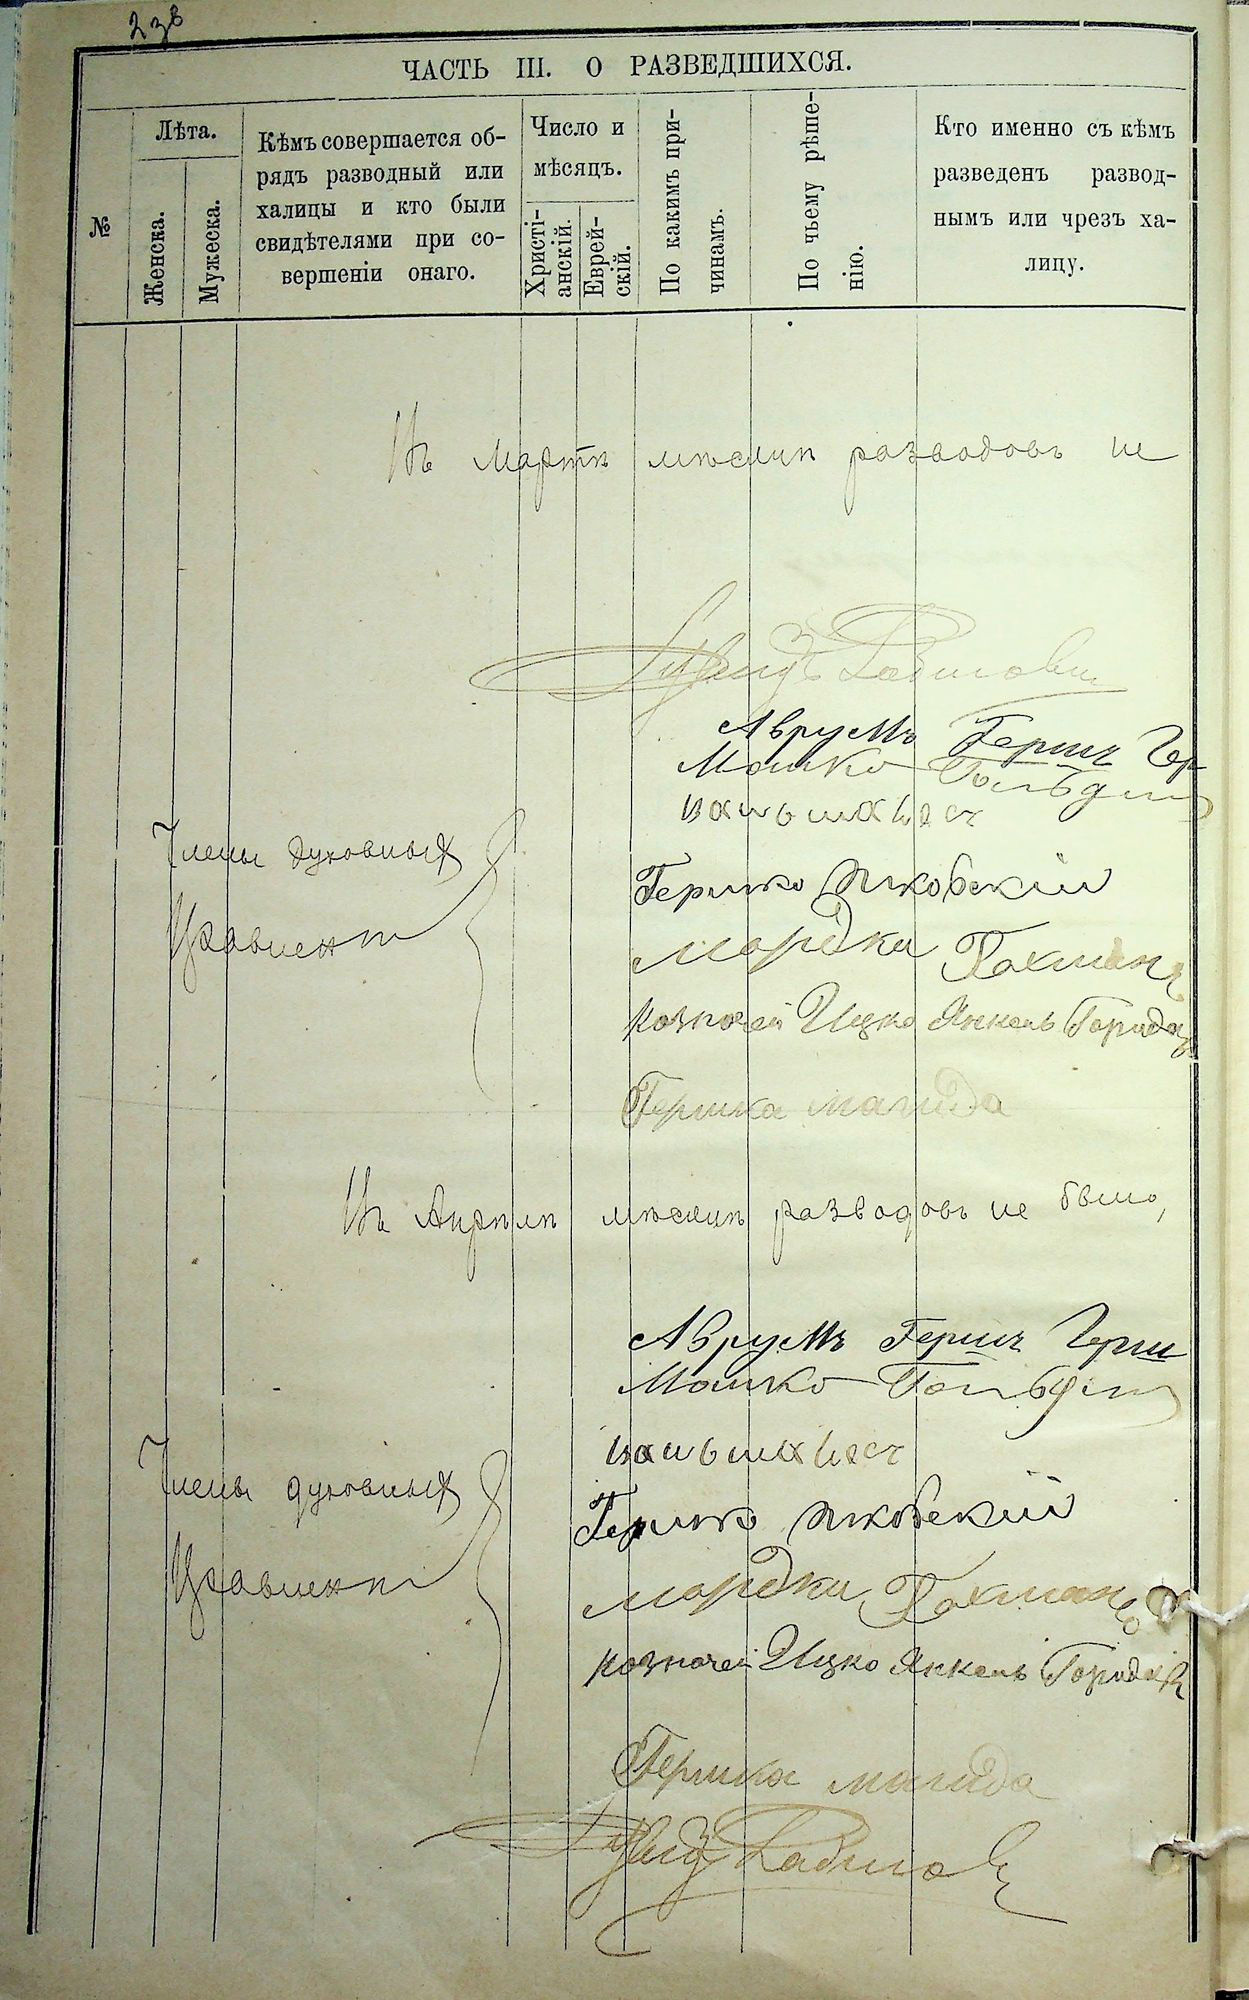 238
ЧАСТЬ III. О РАЗВЕДШИХСЯ.
№
Лѣта.
Женска.
Мужеска.
Кѣмъ совершается об-
рядъ разводный или
халицы и кто были
свидѣтелями при со-
вершеніи онаго.
Число и
мѣсяцъ.
Христі-
анскій.
Еврей-
скій.
По какимъ при-
чинамъ.
По чьему рѣше-
нію.
Кто именно съ кѣмъ
разведенъ развод-
нымъ или чрезъ ха-
лицу.
Въ Мартѣ мѣсяцѣ разводовъ не
Аврумъ Гершъ Гер
Мошко
Члены духовныхъ
Правленій
Гершко
Мордко Рохман
Козначей Ицко Янкель
Гершка магида
Въ Апрѣлѣ мѣсяцѣ разводовъ не было,
Аврумъ Гершъ Герш
Мошко
Члены духовныхъ
Правленій
Гершко
Мордко Рохман
Козначей Ицко Янкель
Гершка магида